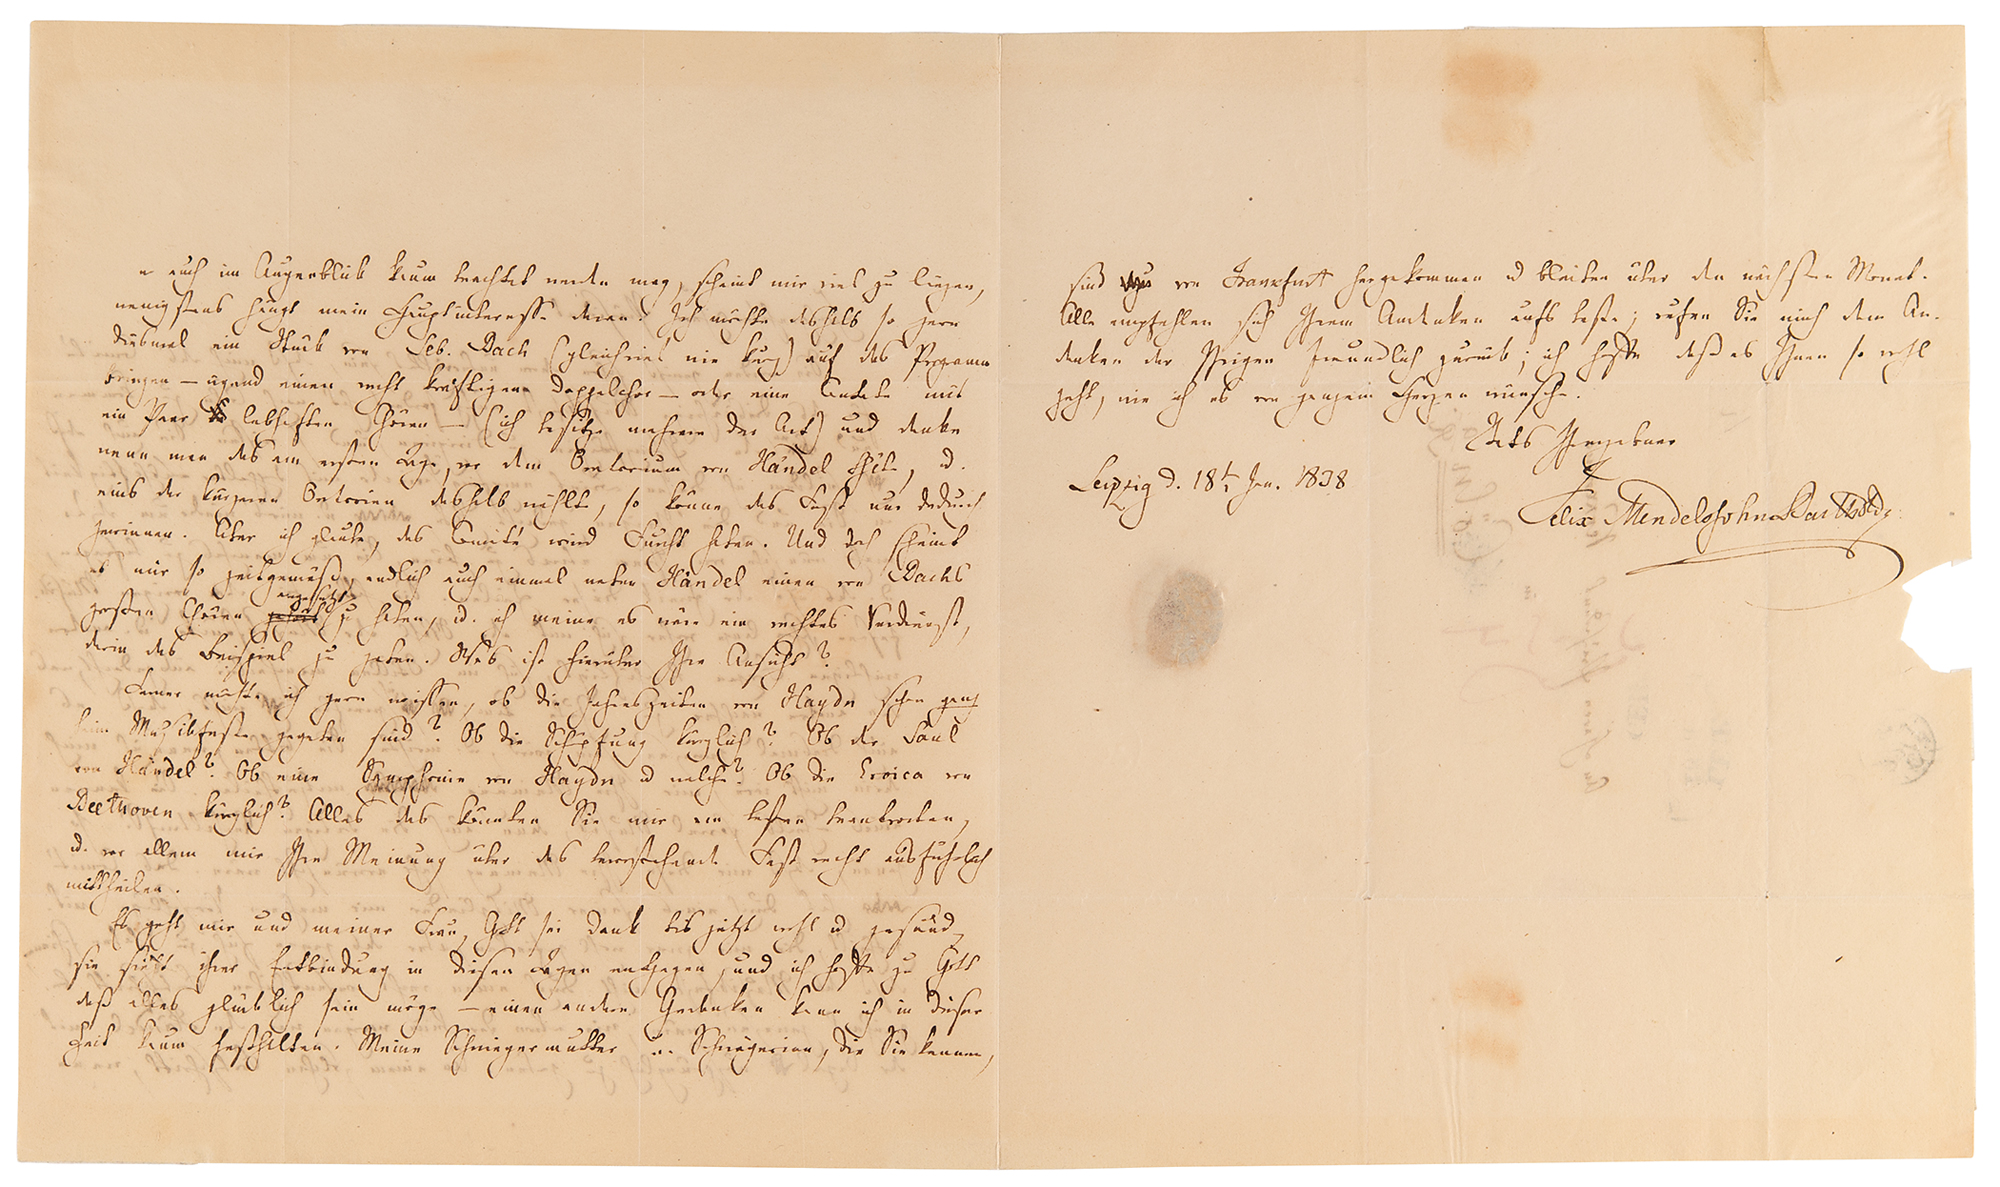 er auch im Augenblick kaum beachtet werden mag, scheint mir viel zu liegen,
wenigstens hängt mein Hauptinteresse daran. Ich möchte deshalb so gern
diesmal ein Stück von Seb. Bach (gleichviel wie kurz) auf das Programm
bringen — irgend einen recht kräftigen Doppelchor — oder eine Cantate mit
ein Paar lebhaften Chören — (ich besitze mehrere der Art) und denke
wenn man das am ersten Tage, vor dem Oratorium von Händel thäte, u.
eins der kürzeren Oratorien deshalb wählte, so könne das Fest nur dadurch
gewinnen. Aber ich glaube, das Comité wird Furcht haben. Und doch scheint
es mir so zeitgemäß, endlich auch einmal neben Händel einen von Bachs
großen Chören zu haben, u. ich meine es wäre ein rechtes Verdienst,
darin das Beispiel zu geben. Was ist hierüber Ihre Ansicht?
Ferner möchte ich gern wissen, ob die Jahreszeiten von Haydn schon ganz
beim Musikfeste gegeben sind? Ob die Schöpfung kürzlich? Ob der Saul
von Händel? Ob eine Symphonie von Haydn u welche? Ob die Eroica von
Beethoven kürzlich? Alles das könnten Sie mir am besten beantworten,
u. vor allem mir Ihre Meinung über das bevorstehende Fest recht ausführlich
mittheilen.
Es geht mir und meiner Frau, Gott sei Dank bis jetzt wohl u gesund,
sie sieht ihrer Entbindung in diesen Tagen entgegen, und ich hoffe zu Gott
daß alles glücklich sein möge — einen andern Gedanken kann ich in dieser
Zeit kaum festhalten. Meine Schwiegermutter u. Schwägerinn, die Sie kennen,
sind von Frankfurt hergekommen u bleiben über den nächsten Monat.
Alle empfehlen sich Ihrem Andenken aufs beste; rufen Sie mich dem An-
denken der Ihrigen freundlich zurück; ich hoffe daß es Ihnen so wohl
geht, wie ich es von ganzem Herzen wünsche.
Stets Ihr ergebener
Felix Mendelssohn Bartholdy
Leipzig d. 18t Jan. 1838